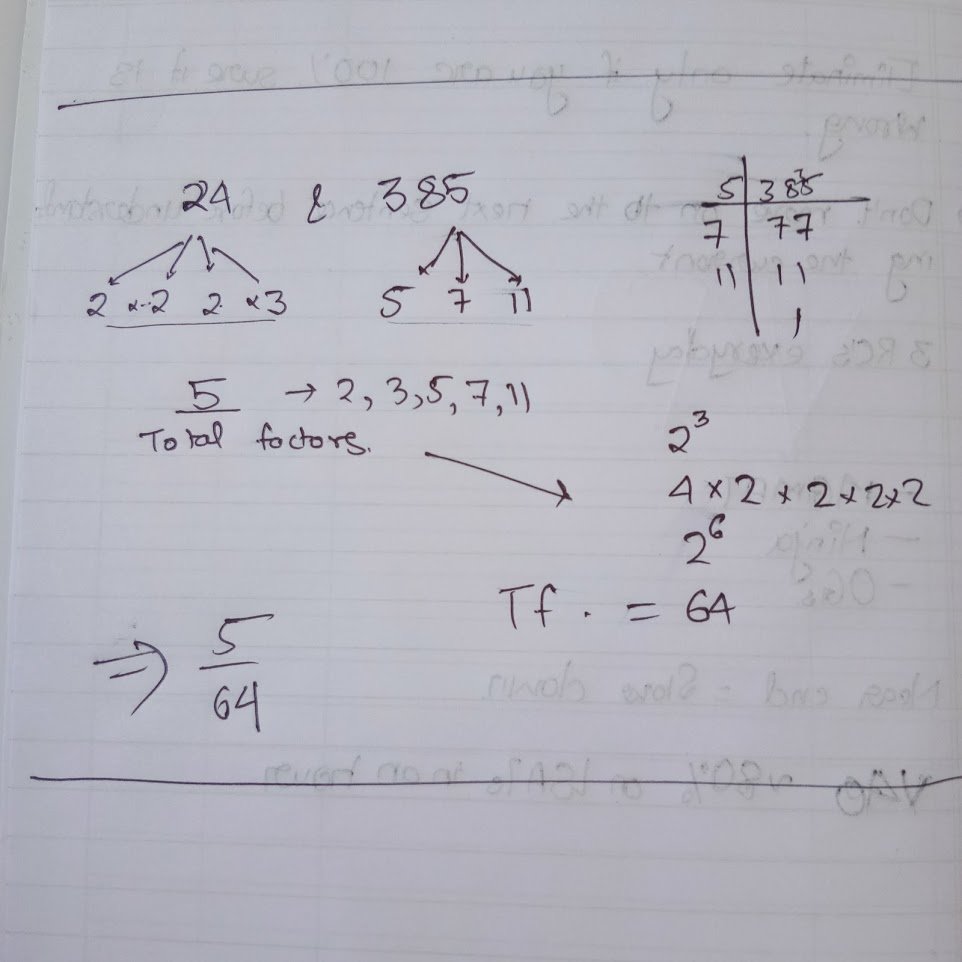 24 & 385
2 x 2 2 x 3
5 7 11
5 | 385
7 | 77
11 | 11
1
5 → 2, 3, 5, 7, 11
Total factors.
2³
4 x 2 x 2 x 2 x 2
2⁶
Tf. = 64
⇒ 5/64